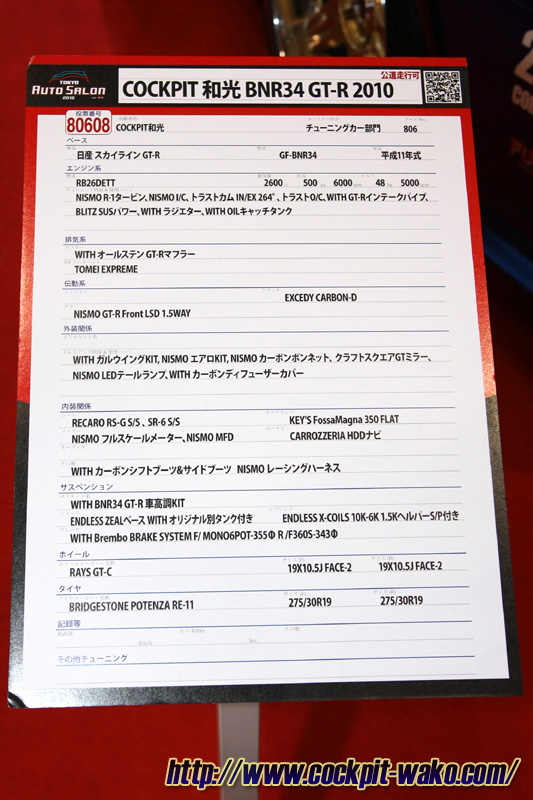 公道走行可
TOKYO
AUTO SALON
2010
COCKPIT 和光 BNR34 GT-R 2010
投票番号
80608
COCKPIT和光
チューニングカー部門
806
ベース
日産 スカイライン GT-R
GF-BNR34
平成11年式
エンジン系
RB26DETT
2600
500
6000
48
5000
NISMO R-1タービン、NISMO I/C、トラストカム IN/EX 264°、トラストO/C、WITH GT-Rインテークパイプ、
BLITZ SUSパワー、WITH ラジエター、WITH OILキャッチタンク
排気系
WITH オールステン GT-Rマフラー
TOMEI EXPREME
伝動系
EXCEDY CARBON-D
NISMO GT-R Front LSD 1.5WAY
外装関係
WITH ガルウイングKIT, NISMO エアロKIT, NISMO カーボンボンネット、クラフトスクエアGTミラー、
NISMO LEDテールランプ、WITH カーボンディフューザーカバー
内装関係
RECARO RS-G S/S 、SR-6 S/S
KEY'S FossaMagna 350 FLAT
NISMO フルスケールメーター、NISMO MFD
CARROZZERIA HDDナビ
その他
WITH カーボンシフトブーツ&サイドブーツ NISMO レーシングハーネス
サスペンション
WITH BNR34 GT-R 車高調KIT
ENDLESS ZEALベース WITH オリジナル別タンク付き
ENDLESS X-COILS 10K-6K 1.5KヘルパーS/P付き
WITH Brembo BRAKE SYSTEM F/ MONO6POT-355Φ R /F360S-343Φ
ホイール
RAYS GT-C
19X10.5J FACE-2
19X10.5J FACE-2
タイヤ
BRIDGESTONE POTENZA RE-11
275/30R19
275/30R19
記録等
0 ~ 400m
その他
Km/h
Sec
その他チューニング
http://www.cockpit-wako.com/